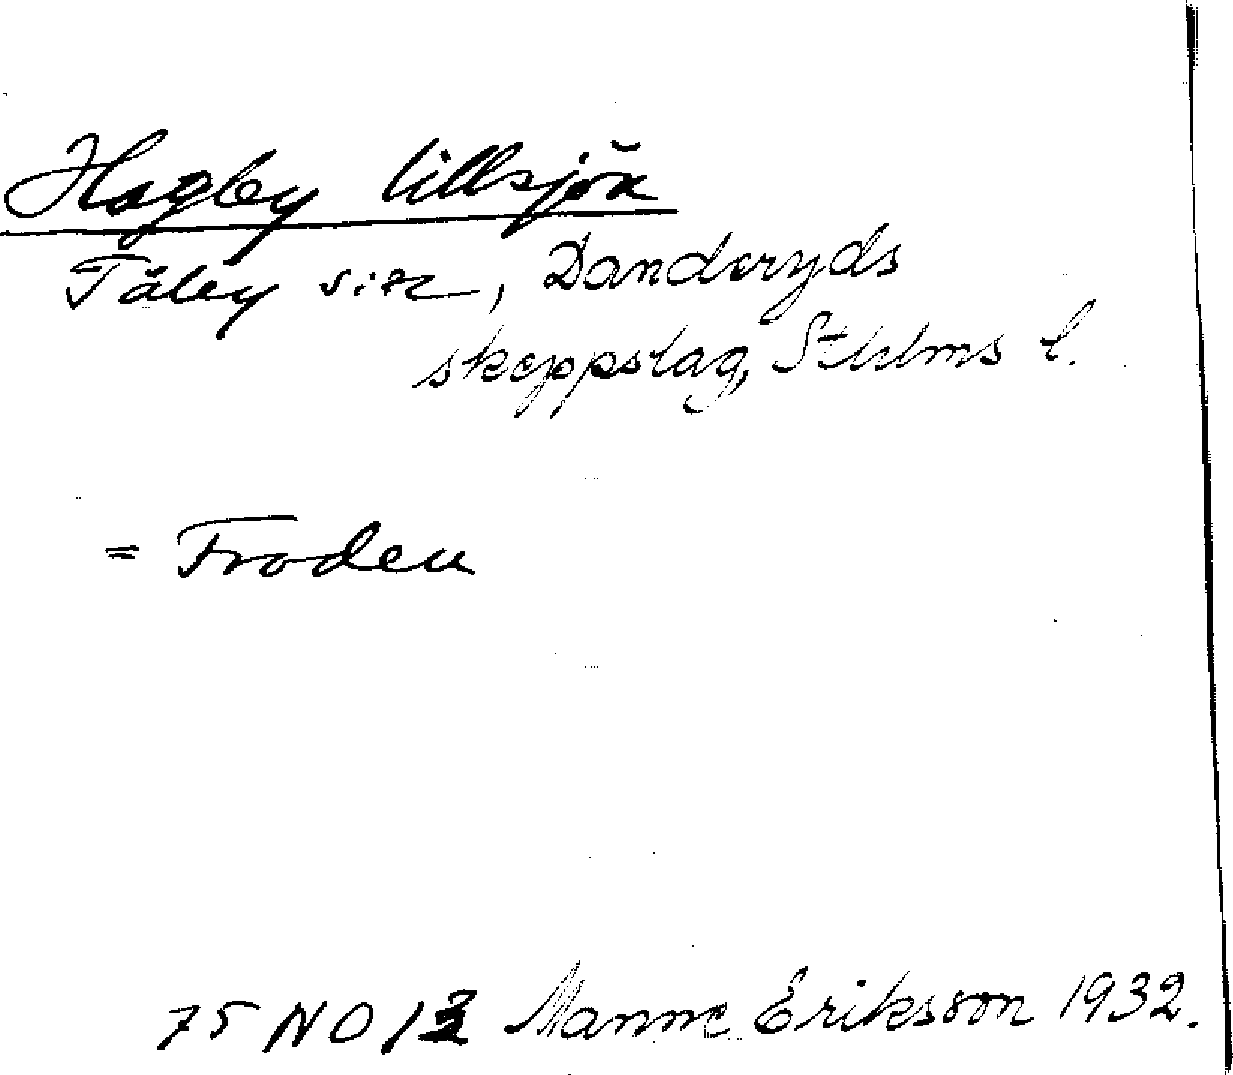 Hagby lillsjön
Täby sn, Danderyds
skeppslag, Sthlms l.
= Froden
75 NO/3 Manne Eriksson 1932.